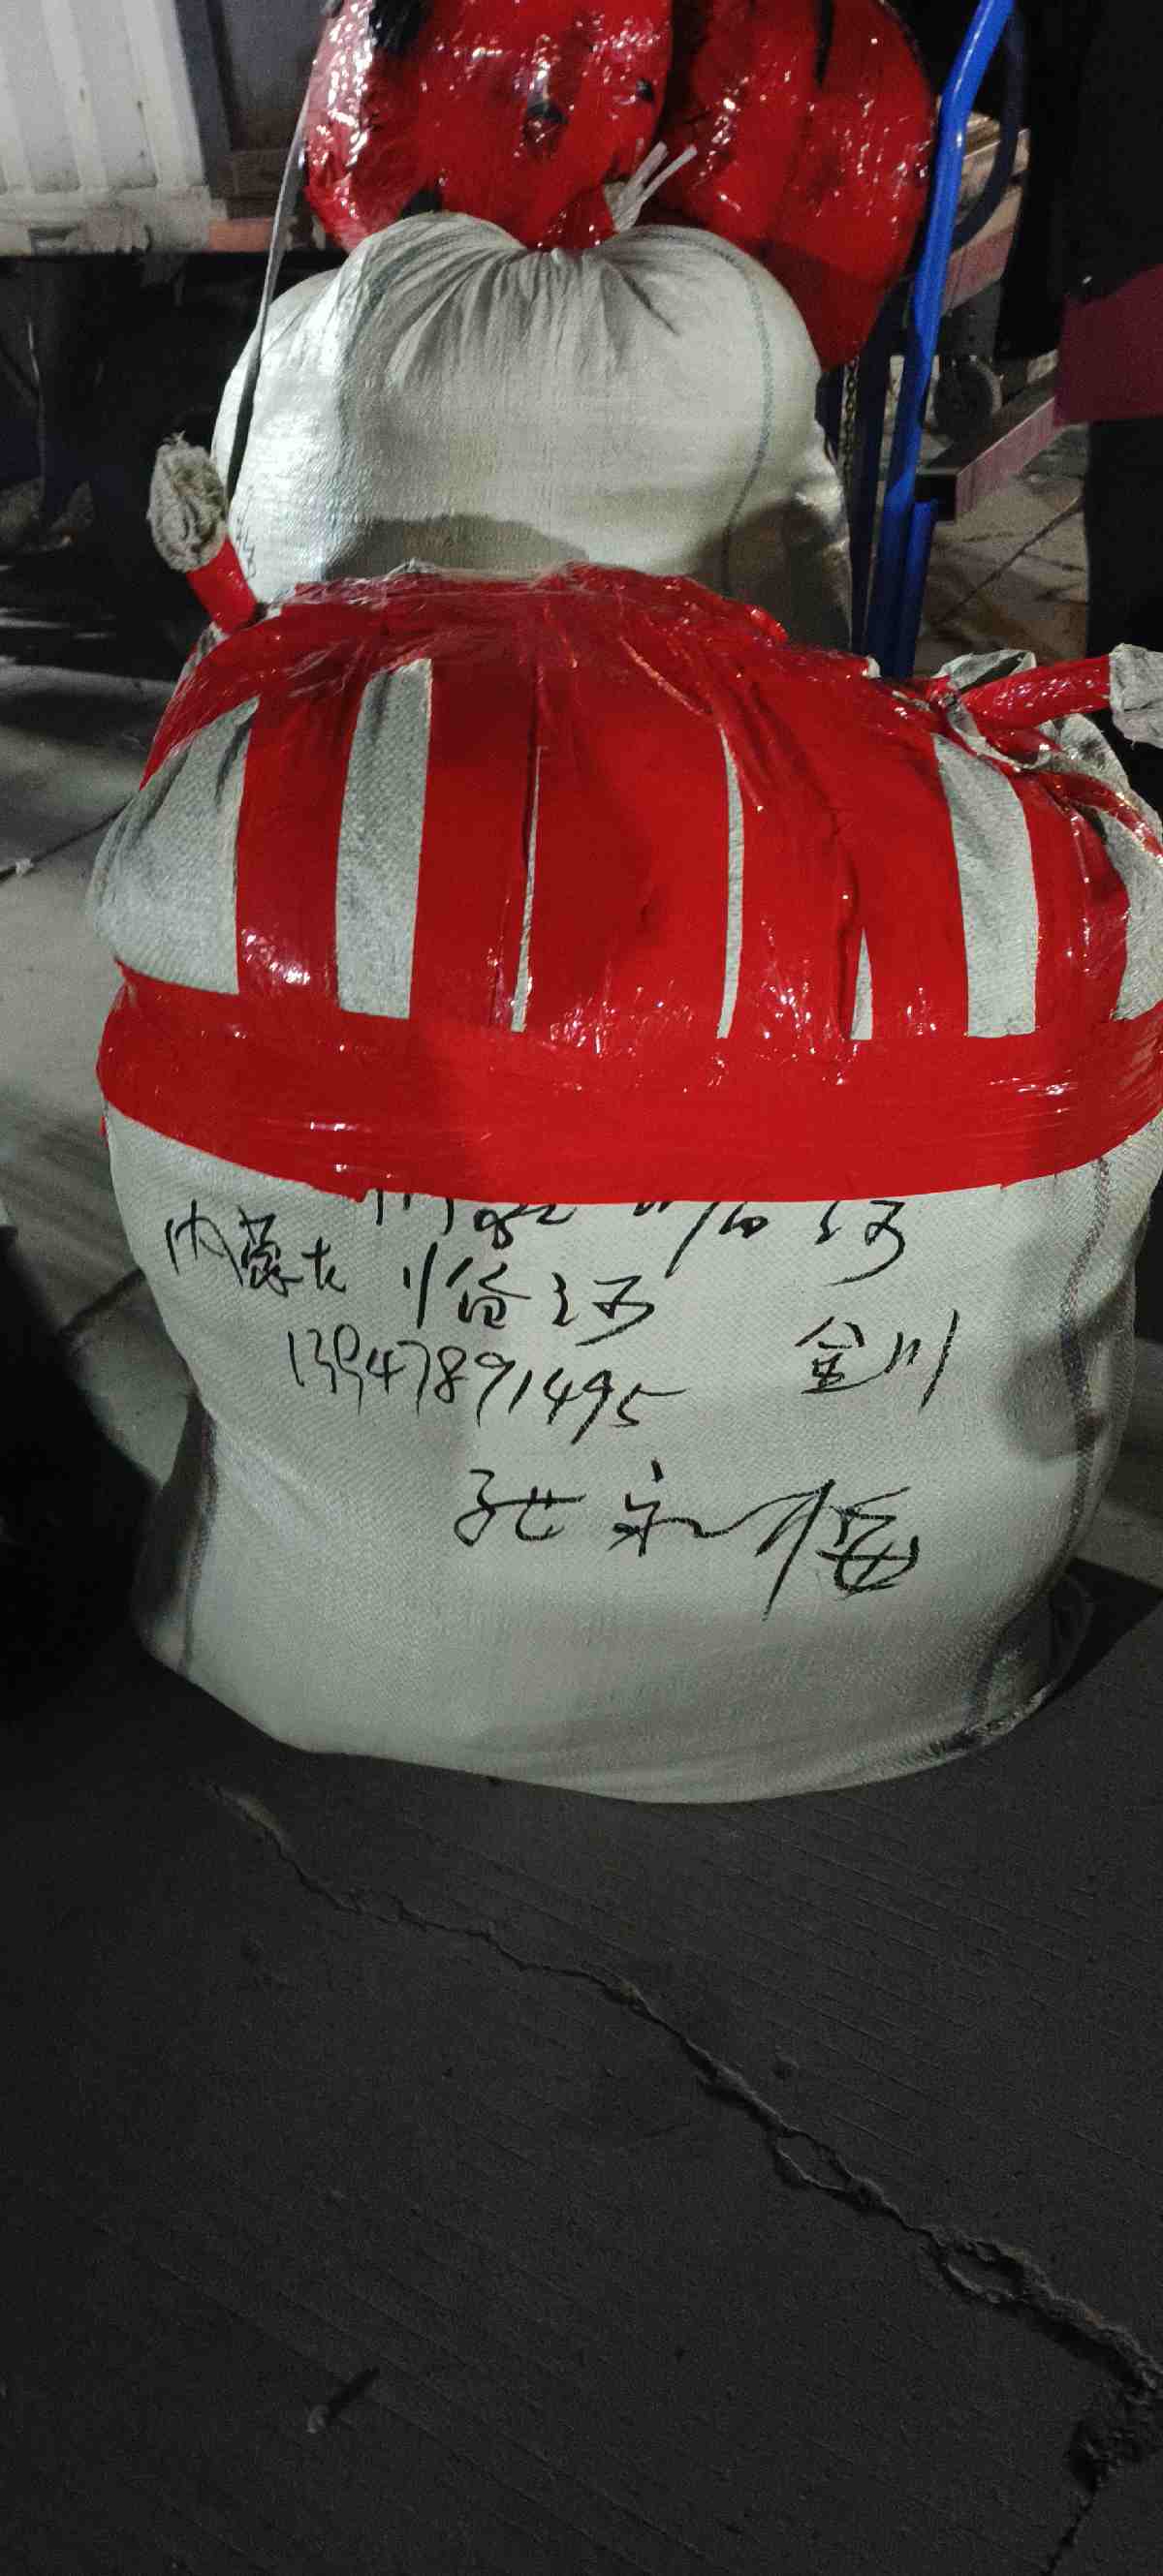 临河
内蒙古 临河
13947891495 金川
永梅